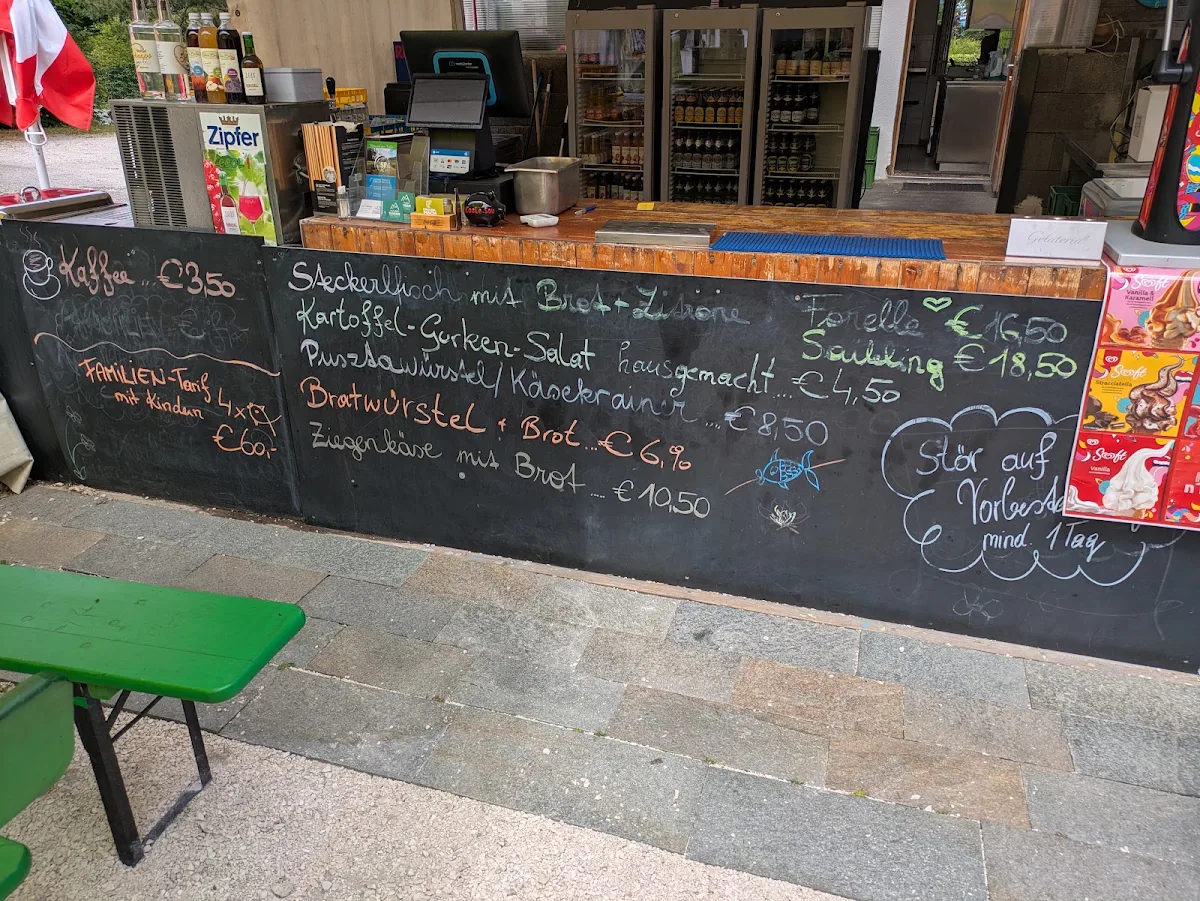 Zipfer
CooLe Sau
Gelateria!
Kaffee ... €3,50
FAMILIEN-Tarif
mit Kindern 4x
€60,-
Steckerlfisch mit Brot + Zitrone Forelle €16,50
Saibling €18,50
Kartoffel-Gurken-Salat hausgemacht ... €4,50
Pusztawürstel/Käsekrainer ... €8,50
Bratwürstel + Brot ... €6,90
Ziegenkäse mit Brot ... €10,50
Stör auf
Vorbeste
mind. 1 Tag
Swoft
Vanilla &
Karamell
Swoft
Stracciatella
Swoft
Vanilla